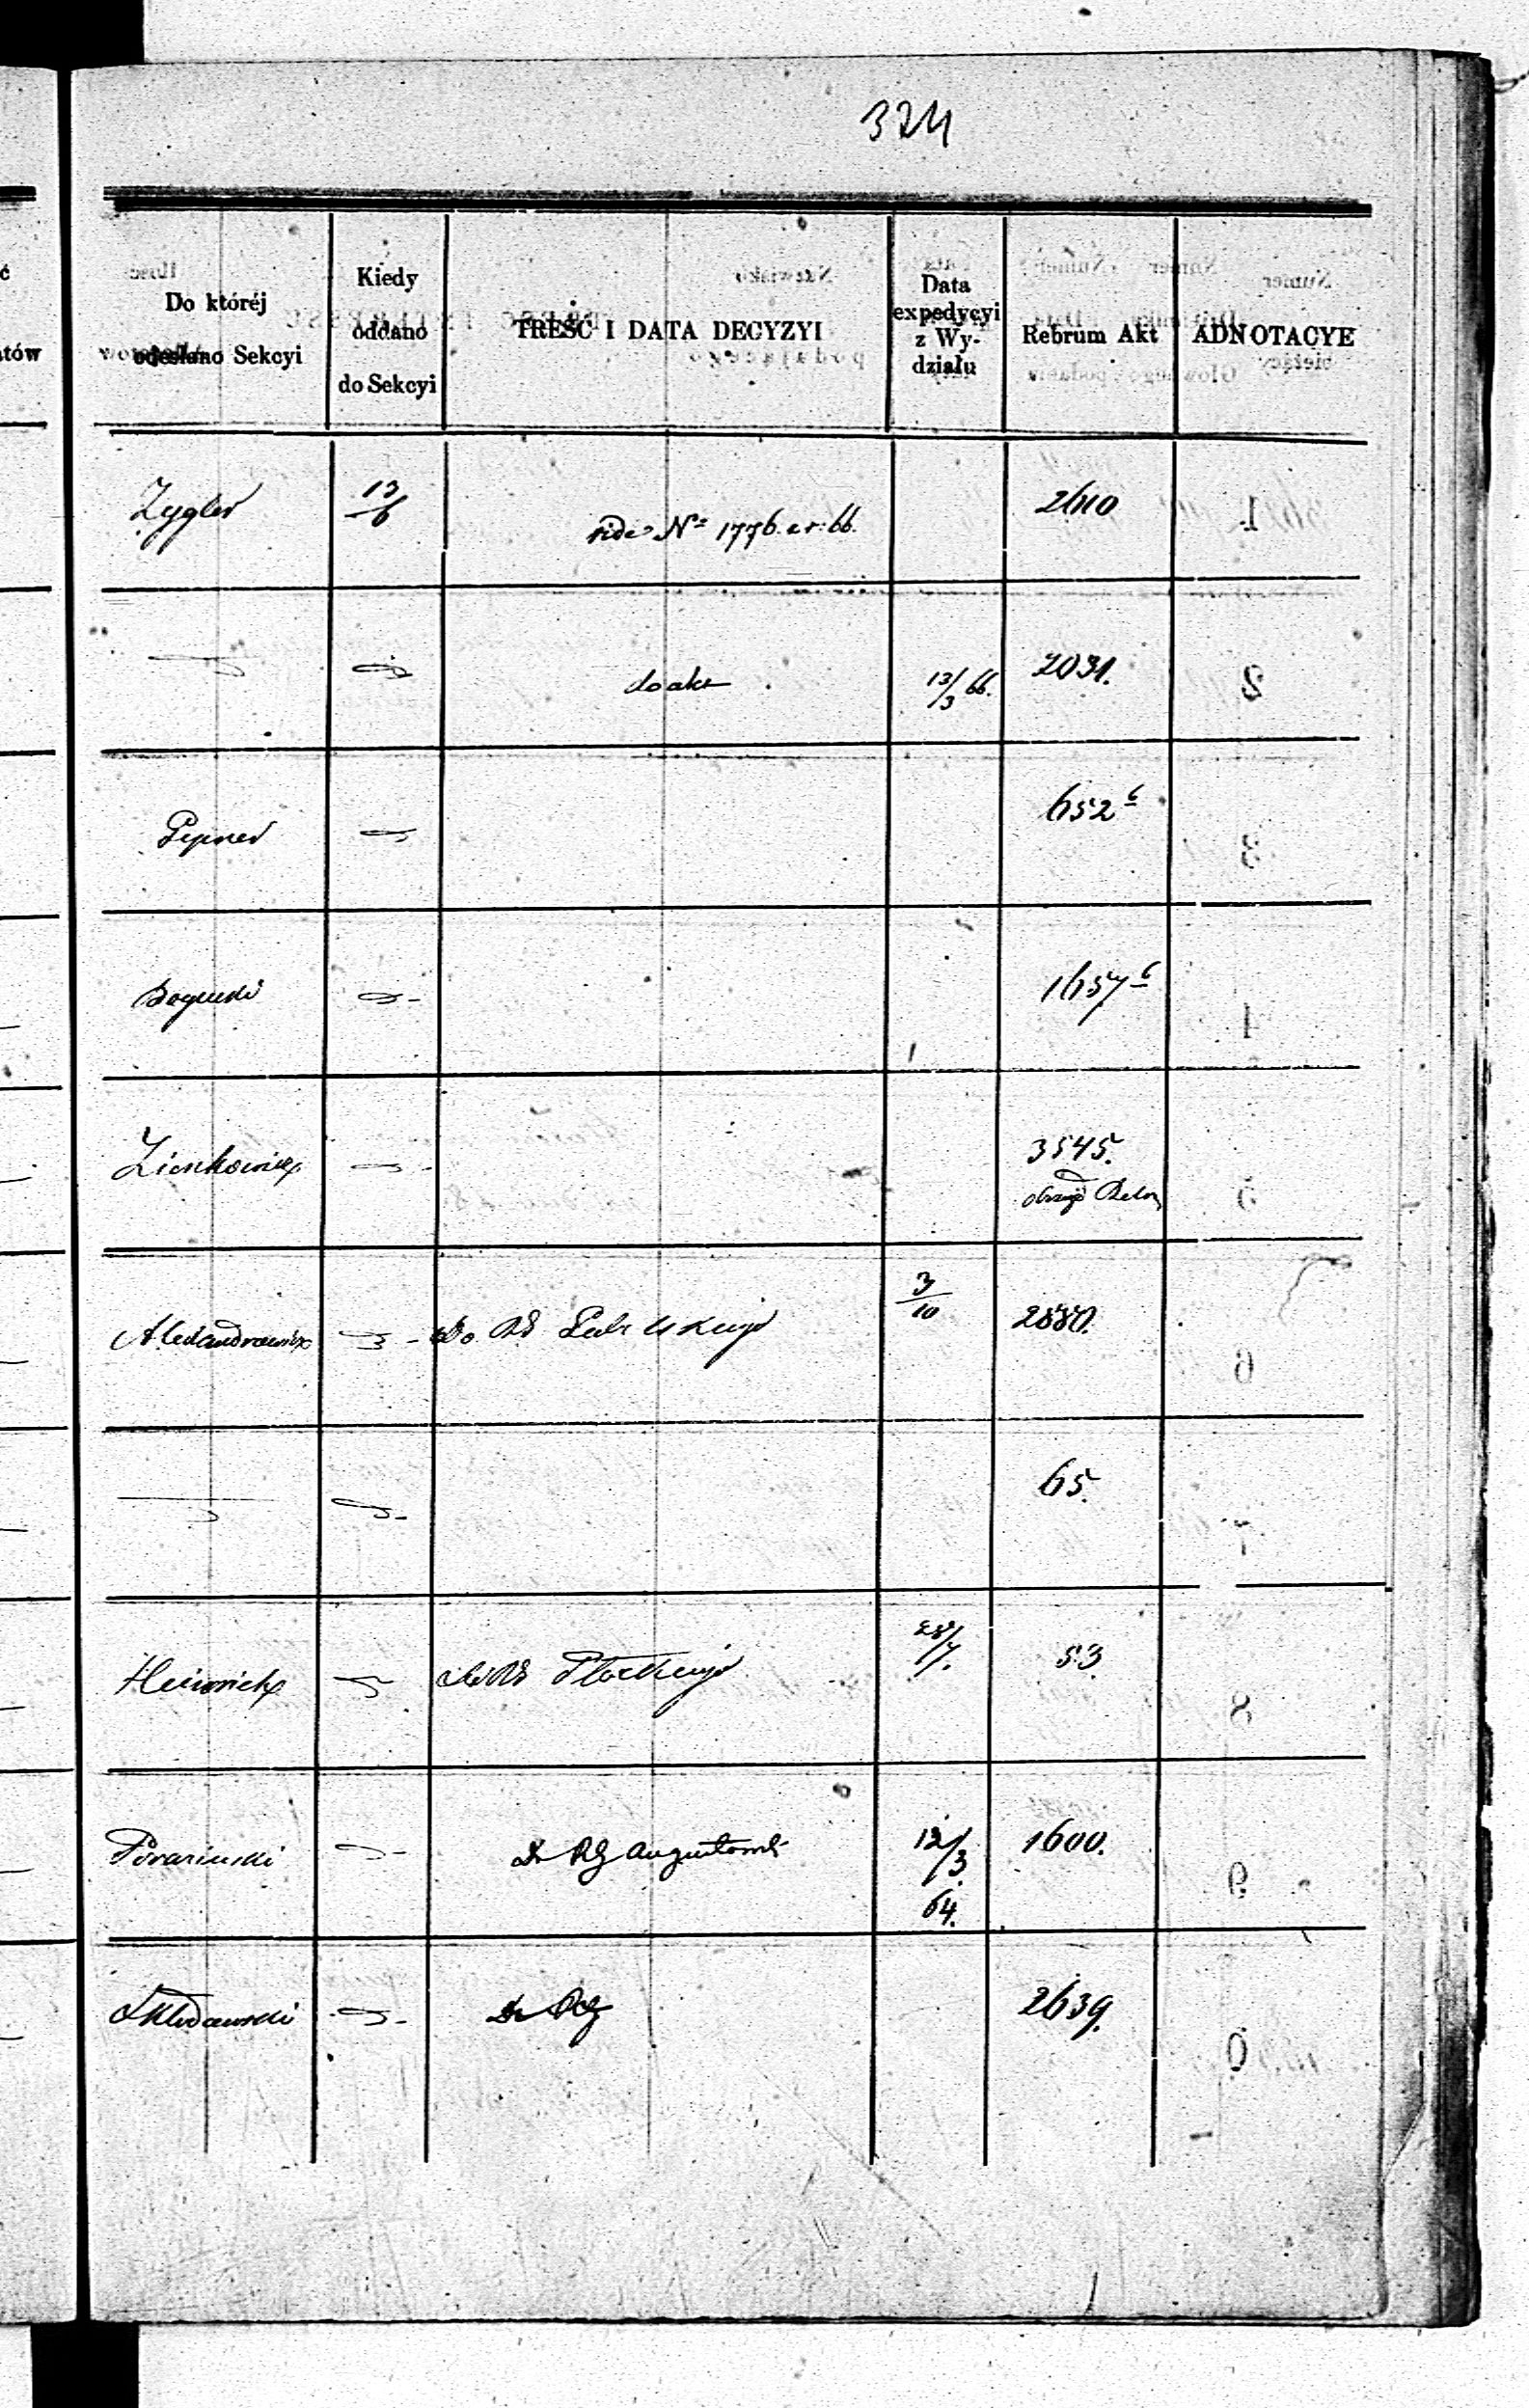 324
Do któréj odesłano Sekcyi
Kiedy oddano do Sekcyi
TREŚĆ I DATA DECYZYI
Data expedycyi z Wydziału
Rebrum Akt
ADNOTACYE
Zygler 13/6 vide Nº 1776. ar: 66. 2610
do akt 13/3 66. 2031.
652 6
Bogucki 1657 6
Zienkowicz 3545.
Alexandrowicz Do RG 3/10 2880.
65.
Heinrich Do RG Płockiego 28/7. 53
Do RG Augustows 12/3. 64. 1600.
Skłodawski Do RG 2639.